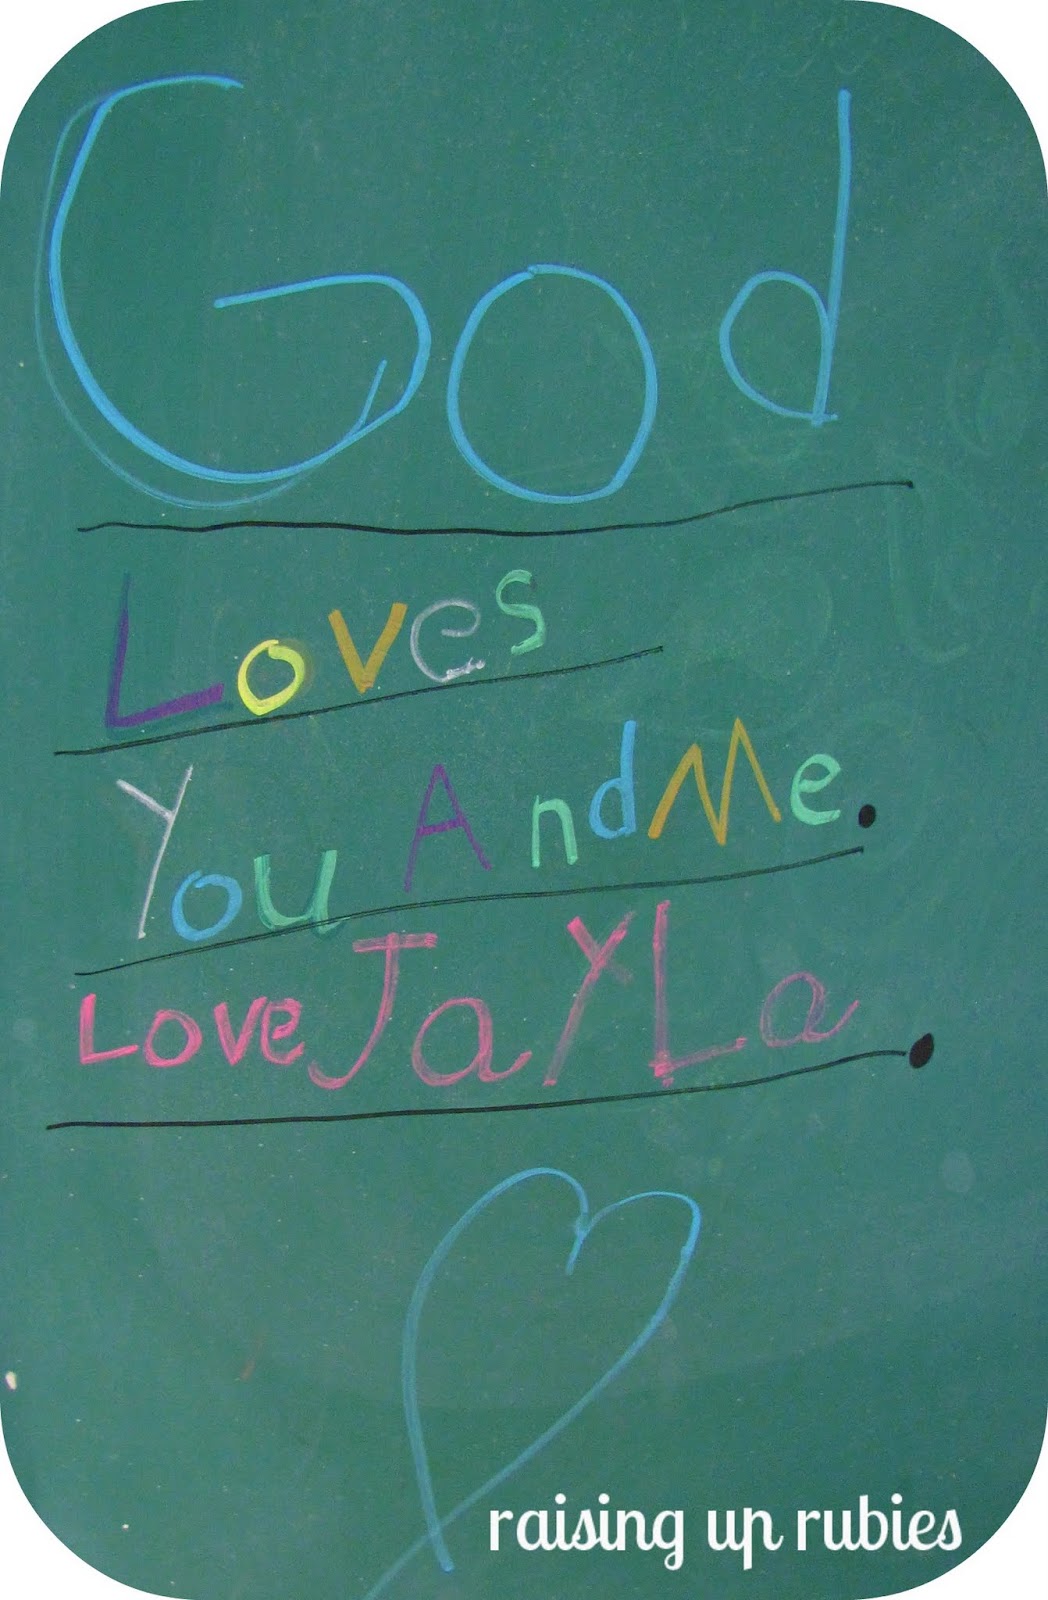 God
Loves
You And Me.
Love JaYLa.
raising up rubies